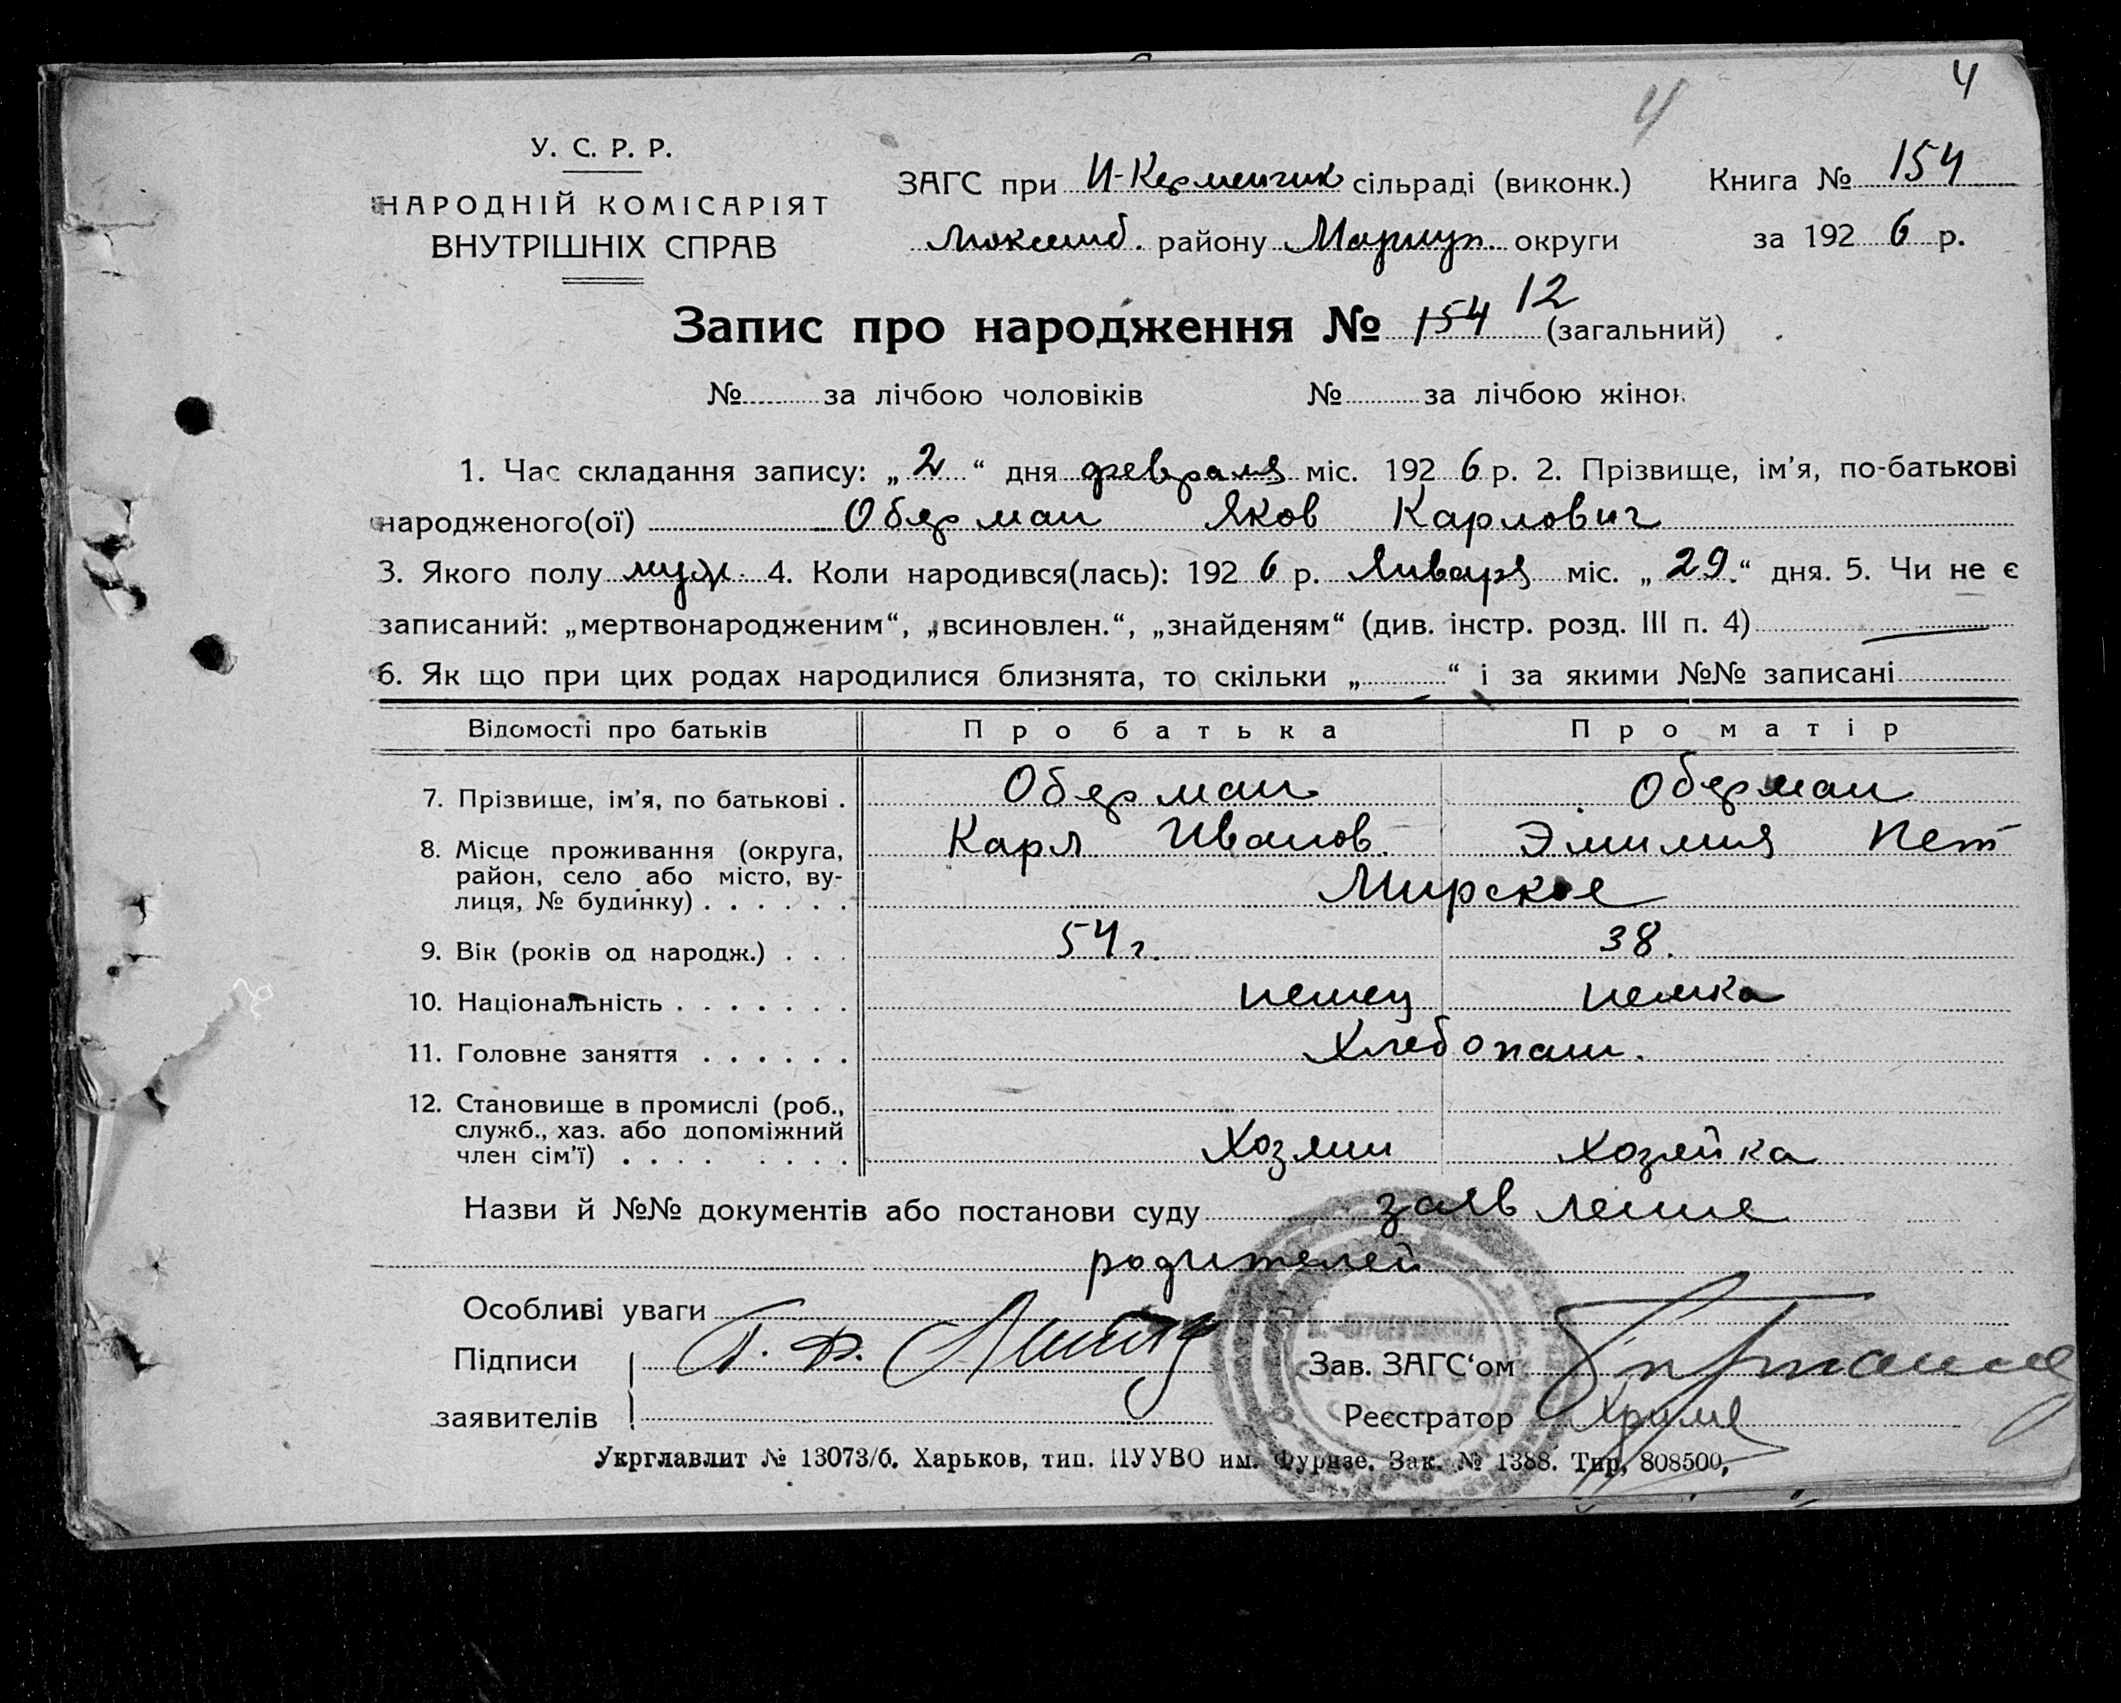 4
4
У. С. Р. Р.
НАРОДНІЙ КОМІСАРІЯТ
ВНУТРІШНІХ СПРАВ
ЗАГС при Н-Керменчик сільраді (виконк.) Книга № 154
району Мариуп. округи за 1926 р.
12
Запис про народження № 154 (загальний)
№ за лічбою чоловіків № за лічбою жінок
1. Час складання запису: „2“ дня февраля міс. 1926 р. 2. Прізвище, ім’я, по-батькові
народженого(ої) Оберман Яков Карлович
3. Якого полу муж. 4. Коли народився(лась): 1926 р. Января міс. „29.“ дня. 5. Чи не є
записаний: „мертвонародженим“, „всиновлен.“, „знайденям“ (див. інстр. розд. III п. 4) —
6. Як що при цих родах народилися близнята, то скільки „ “ і за якими №№ записані
Відомості про батьків Про батька Про матір
7. Прізвище, ім’я, по батькові . Оберман Оберман
Карл Иванов. Эмилия Пет
8. Місце проживання (округа,
район, село або місто, ву-
лиця, № будинку) . . . . . . Мирское
9. Вік (років од народж.) . . . 54 г. 38.
10. Національність . . . . . . . немец немка
11. Головне заняття . . . . . . Хлебопаш.
12. Становище в промислі (роб.,
служб., хаз. або допоміжний
член сім’ї) . . . . . . . . Хозяин Хозяйка
Назви й №№ документів або постанови суду заявление
родителей
Особливі уваги
Підписи
заявителів
Зав. ЗАГС‘ом
Реєстратор
Укрглавлит № 13073/б. Харьков, тип. ПУУВО им. Фурнзе. Зак. № 1388. Тир. 808500,